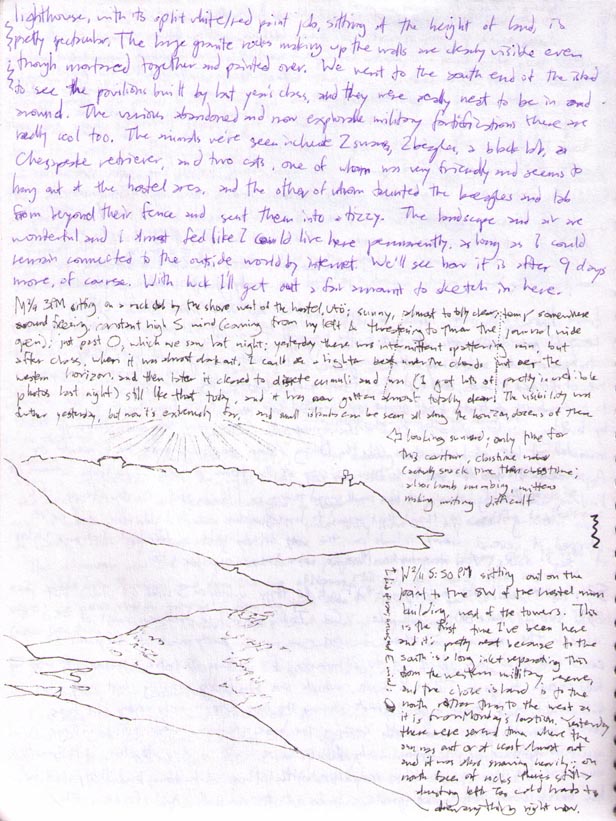 lighthouse, with its split white/red paint job, sitting at the height of land, is
pretty spectacular. The large granite rocks making up the walls are clearly visible even
though mortared together and painted over. We went to the south end of the island
to see the pavilions built by last year's class, and they were really neat to be in and
around. The various abandoned and now explorable military fortifications there are
really cool too. The animals we've seen include 2 swans, 2 beagles, a black lab, a
Chesapeake retriever, and two cats, one of whom was very friendly and seems to
hang out at the hostel area, and the other of whom taunted the beagles and lab
from beyond their fence and sent them into a tizzy. The landscape and air are
wonderful and I almost feel like I could live here permanently, as long as I could
remain connected to the outside world by internet. We'll see how it is after 9 days
more, of course. With luck I'll get out a fair amount to sketch in here.
3PM sitting on a rock by the shore west of the hostel, Utö; sunny, almost totally clear; temp somewhere
around freezing, constant high S wind (coming from my left & threatening to the journal wide
open); just past which we saw last night; yesterday there was intermittent spattering rain but
after class, when it was almost dark out, I could see a lighter under the clouds just over the
western horizon, and then later it cleared to discrete cumuli and sun (I got lots of pretty incredible
photos last night) still like that today, and it has now gotten almost totally clear! The visibility was
further yesterday, but now it's extremely far, and small islands can be seen all along the horizon, dozens of them
looking sunward; only time for
this contour,
snack time then class time;
also climb numbing, mittens
making writing difficult
5:50 PM sitting out on the
point to the SW of the hostel main
building, west of the towers. This
is the first time I've been here
and it's pretty neat because to the
south is a long inlet separating this
from the western military
and the close island is to the
north rather than to the west as
it is from Monday's location. Yesterday
there were several times where the
sun was out or at least almost out
and it was also snowing heavily; on
north faces of rocks there's still a
dusting left. Too cold hands to
draw anything right now.